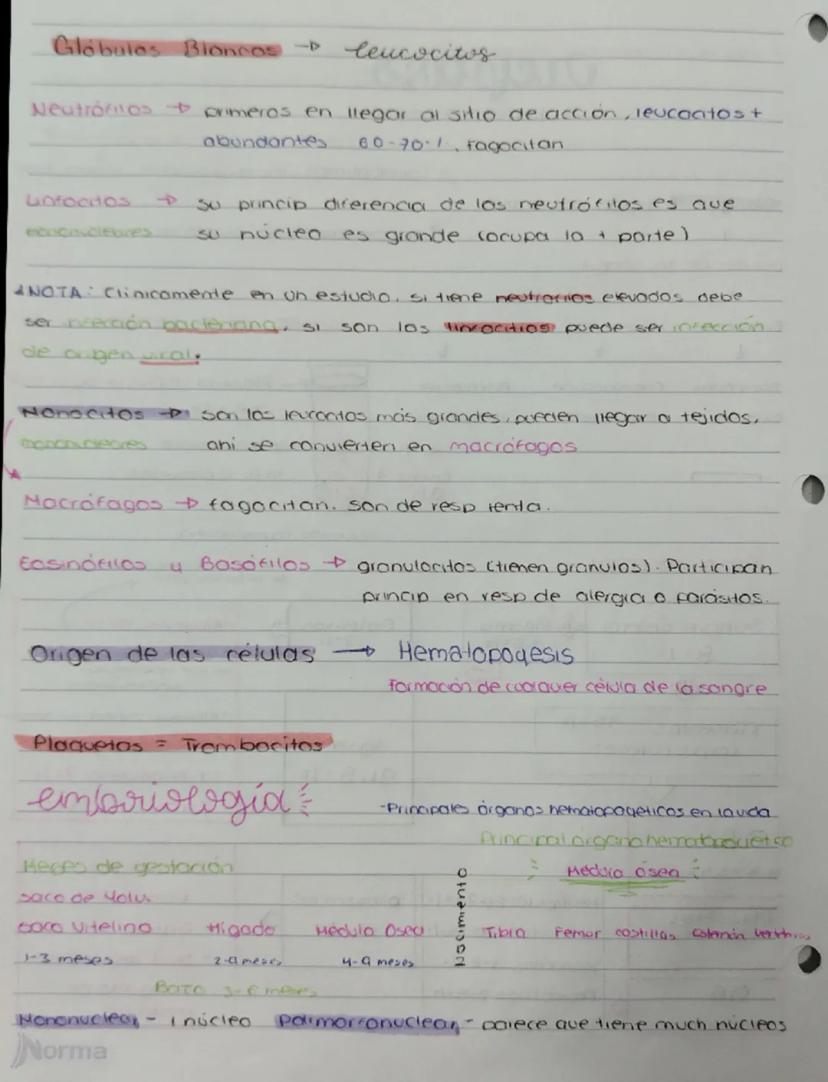 Glóbulos Blancos → leucocitos
Neutrófilos → primeros en llegar al sitio de acción, leucocitos +
abundantes 60-70%, fagocitan
Linfocitos → su princip diferencia de los neutrófilos es que
mononucleares su núcleo es grande (ocupa la + parte)
*NOTA: Clínicamente en un estudio, si tiene neutrofilos elevados debe
ser infección bacteriana, si son los linfocitos puede ser infección
de origen viral.
Monocitos → son los leucocitos más grandes, pueden llegar a tejidos,
mononucleares ahí se convierten en macrófagos
Macrófagos → fagocitan. son de resp lenta.
Eosinófilos y Basófilos → granulocitos (tienen granulos). Participan
princip en resp de alergia o parásitos.
Origen de las células → Hematopoyesis
Formación de cualquier célula de la sangre
Plaquetas = Trombocitos
embriología
-Principales órganos hematopoyeticos en la vida
Principal órgano hematopoyético
Meses de gestación
Médula ósea
saco de Yolk
saco vitelino Hígado Médula Osea nacimiento Tibia Femor costillas columna vertebral
1-3 meses 2-9 meses 4-9 meses
Bazo 3-6 meses
Mononuclear - 1 núcleo Polimorfonuclear - parece que tiene much núcleos
Norma